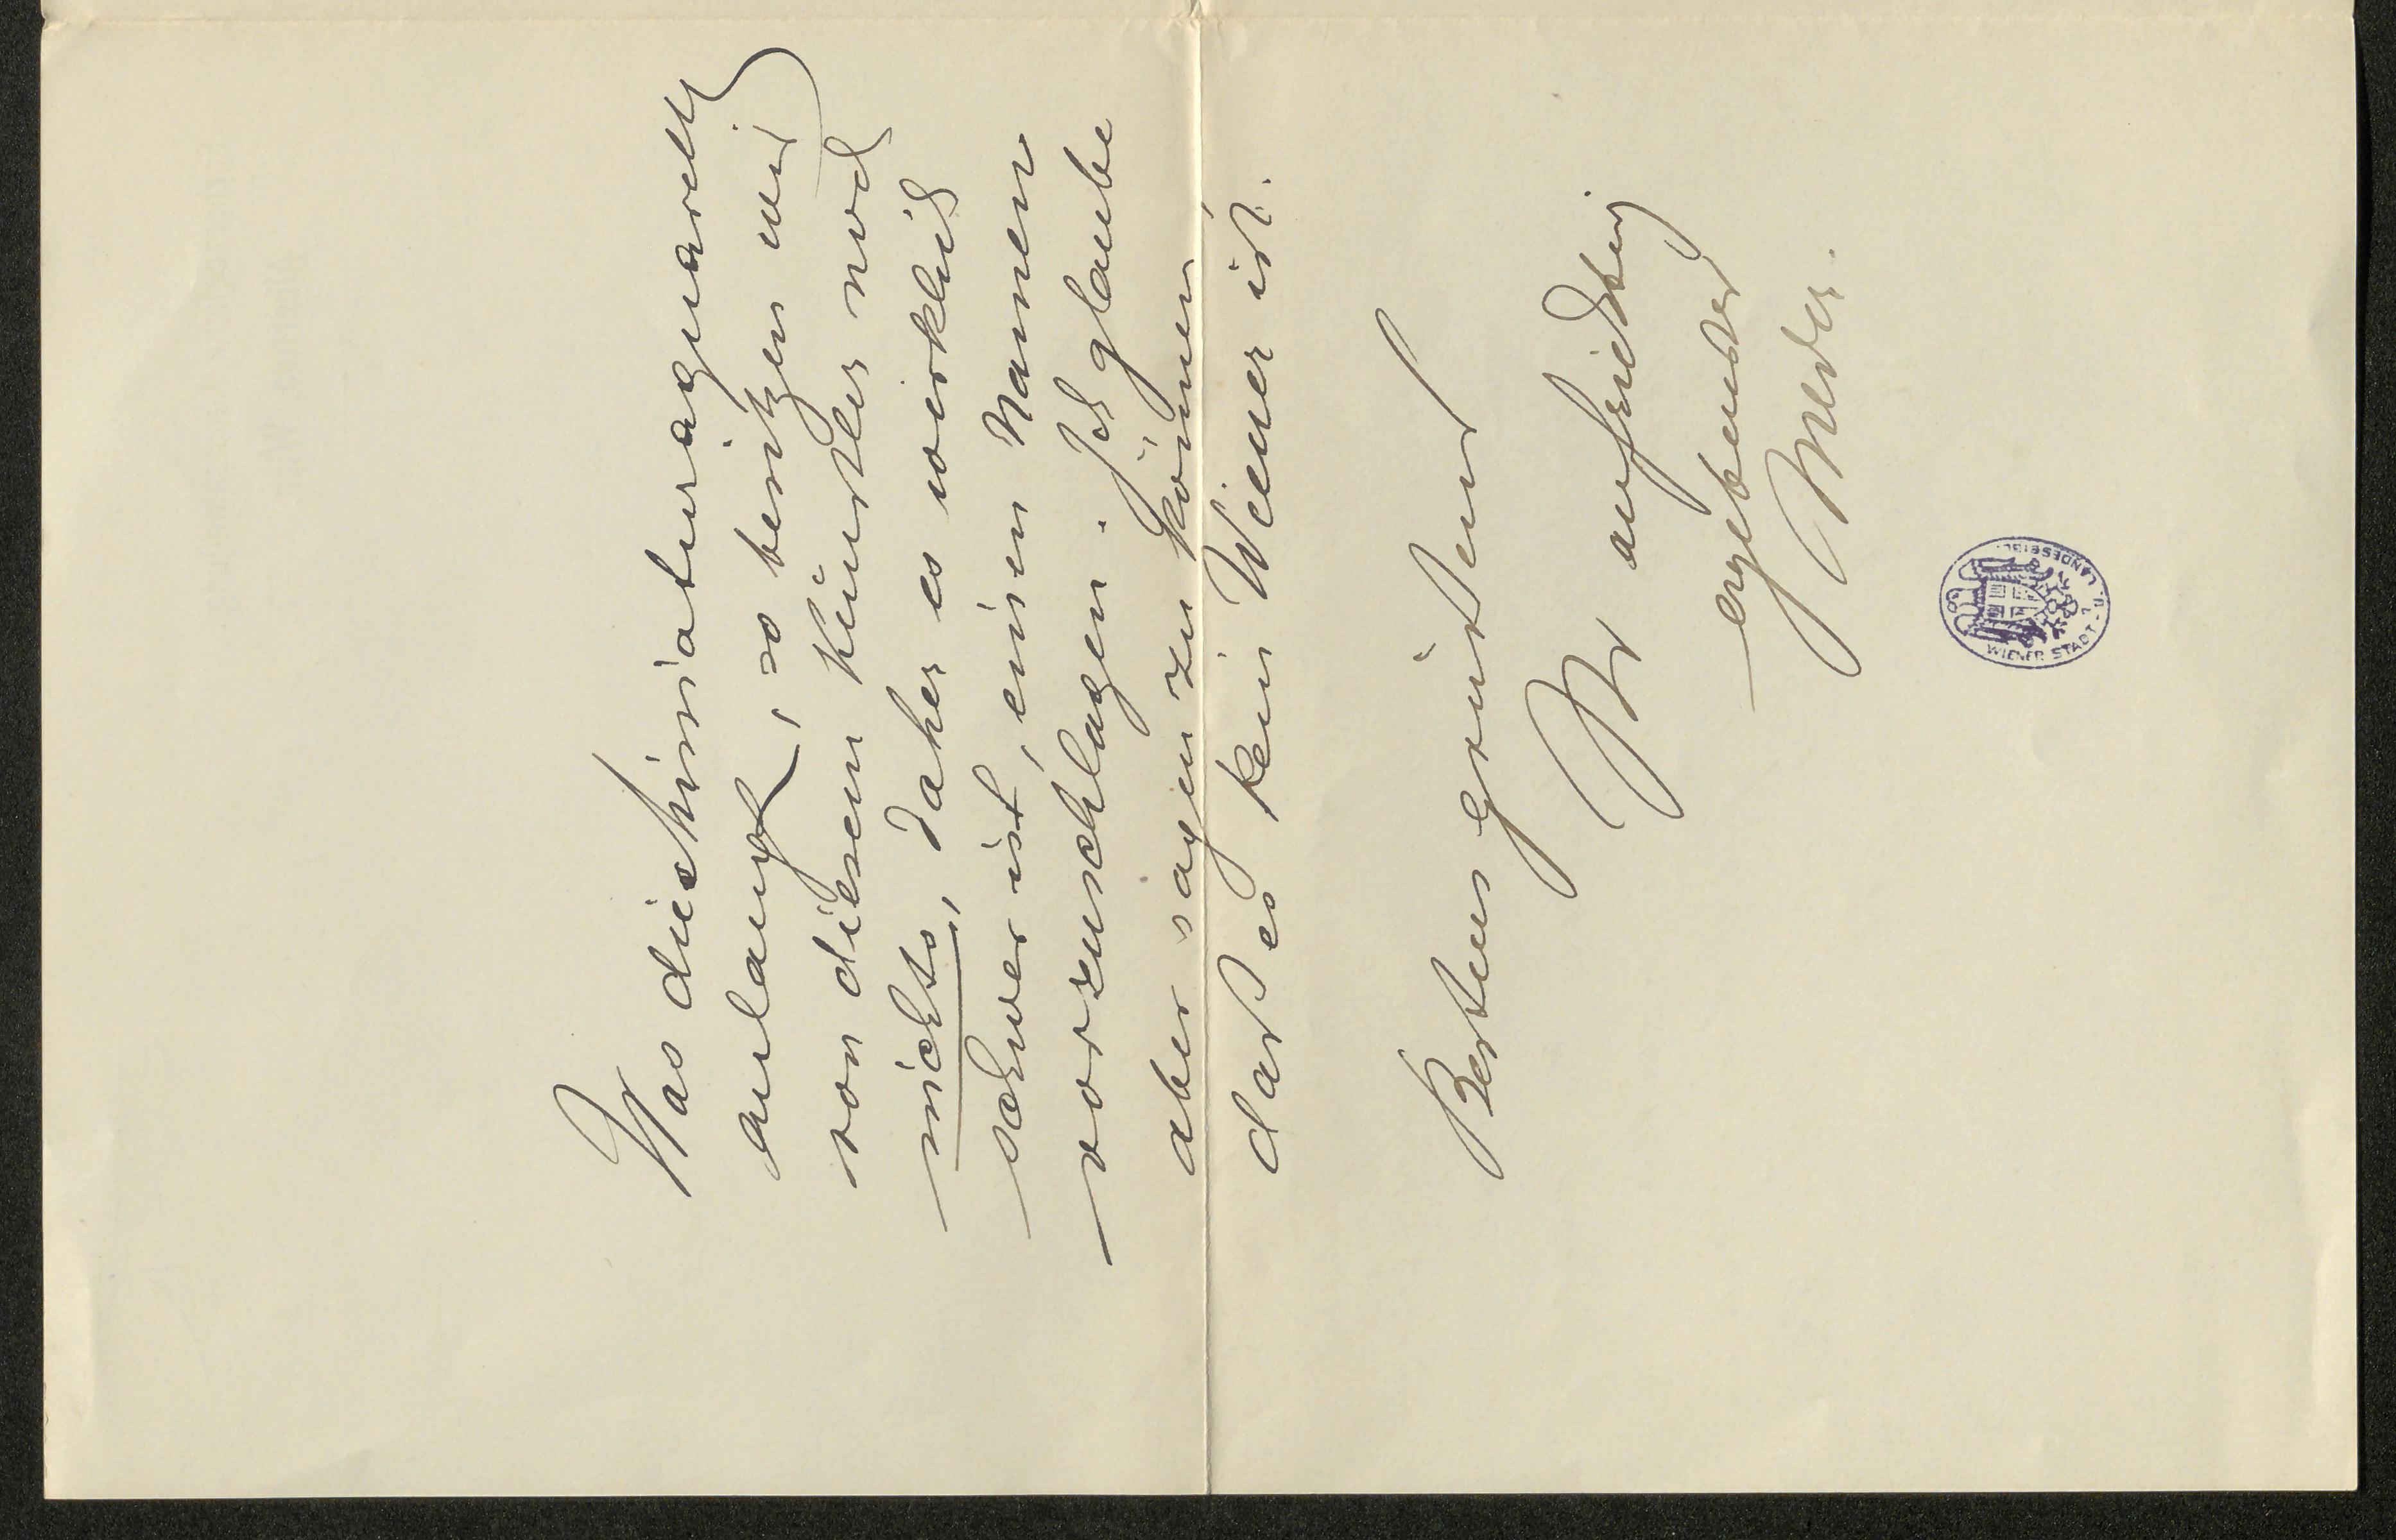 Was die Miniaturaquarelle
anlangt, so besitzen wir
von diesem Künstler noch
nichts, daher es wirklich
schwer ist, einen Namen
vorzuschlagen. Ich glaube
aber sagen zu können,
daß es kein Wiener ist.
Bestens grüßend
Ihr aufrichtig
ergebenster
Meder.
WIENER STADT- U. LANDESBIBL.